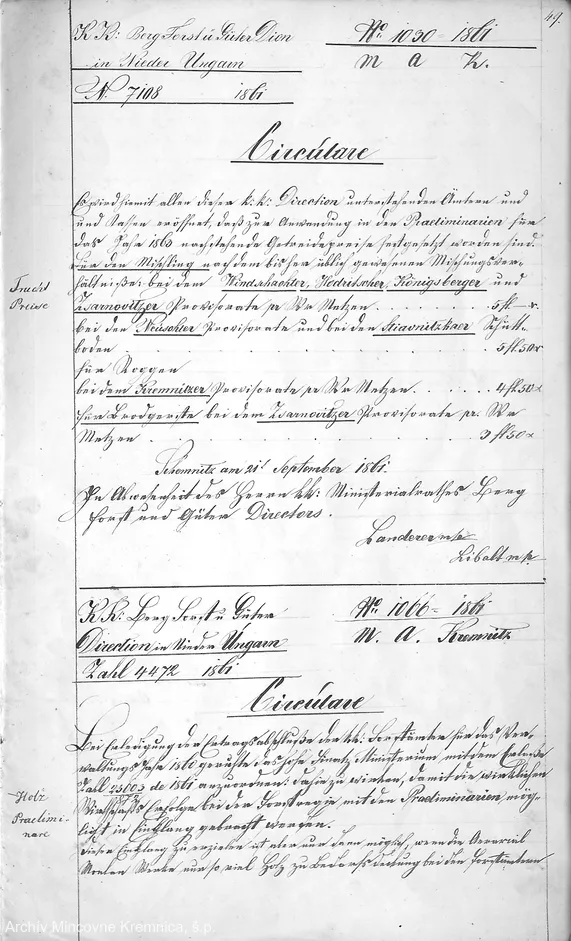 49.
K K: Berg Forst u Güter Dion
in Nieder Ungarn
No. 7108 1861
No. 1030 = 1861
M A K.
Circulare
Es wird hiemit allen dieser k: k: Direction unterstehenden Ämtern und
und Kassen eröffnet, daß zur Anwendung in den Praeliminarien für
das Jahr 1863 nachstehende Getreidepreise festgesetzt worden sind.
Für den Mischling nach dem bisher üblich gewesenen Mischungsver-
hältniße: bei dem Windschachter, Hodritscher, Königsberger und
Zsarnovitzer Provisorate pr Wr Metzen . . . . . . 5 fl — x.
bei den Neusohler Provisorate und bei den Schütt-
boden . . . . . . 5 fl. 50 x
für Roggen
bei dem Kremnitzer Provisorate pr Wr Metzen . . . . . . 4 fl 50 x
für Brodgerste bei dem Zsarnovitzer Provisorate pr. Wr
Metzen . . . . . . 3 fl 50 x
Frucht
Preise
Schemnitz am 21t September 1861.
In Abwesenheit des Herrn kk: Ministerialrathes Berg
Forst und Güter Directors.
Landerer m/p
Libalt m/p.
K K: Berg Forst u Güter
Direction in Nieder Ungarn
Zahl 4472 1861
No. 1066 = 1861
M. A. Kremnitz
Circulare
Bei Erledigung der Ertragsabschluße der kk: Forstämter für das Ver-
waltungs Jahr 1860 geruhte das hohe Finanz Ministerium mit dem Erlaße
Zahl 23603 de 1861 anzuordnen: dahin zu wirken, damit die wirklichen
Wirthschafts Erfolge bei der Forstregie mit den Praeliminarien mög-
lichst in Einklang gebracht werden.
Diesen Einklang zu erzielen ist aber nur dann möglich, wenn die Aerarial
Montan Werke nur so viel Holz zu Bedarfsdeckung bei den Forstämtern
Holz
Praelimi-
nare
Archív Mincovne Kremnica, š.p.